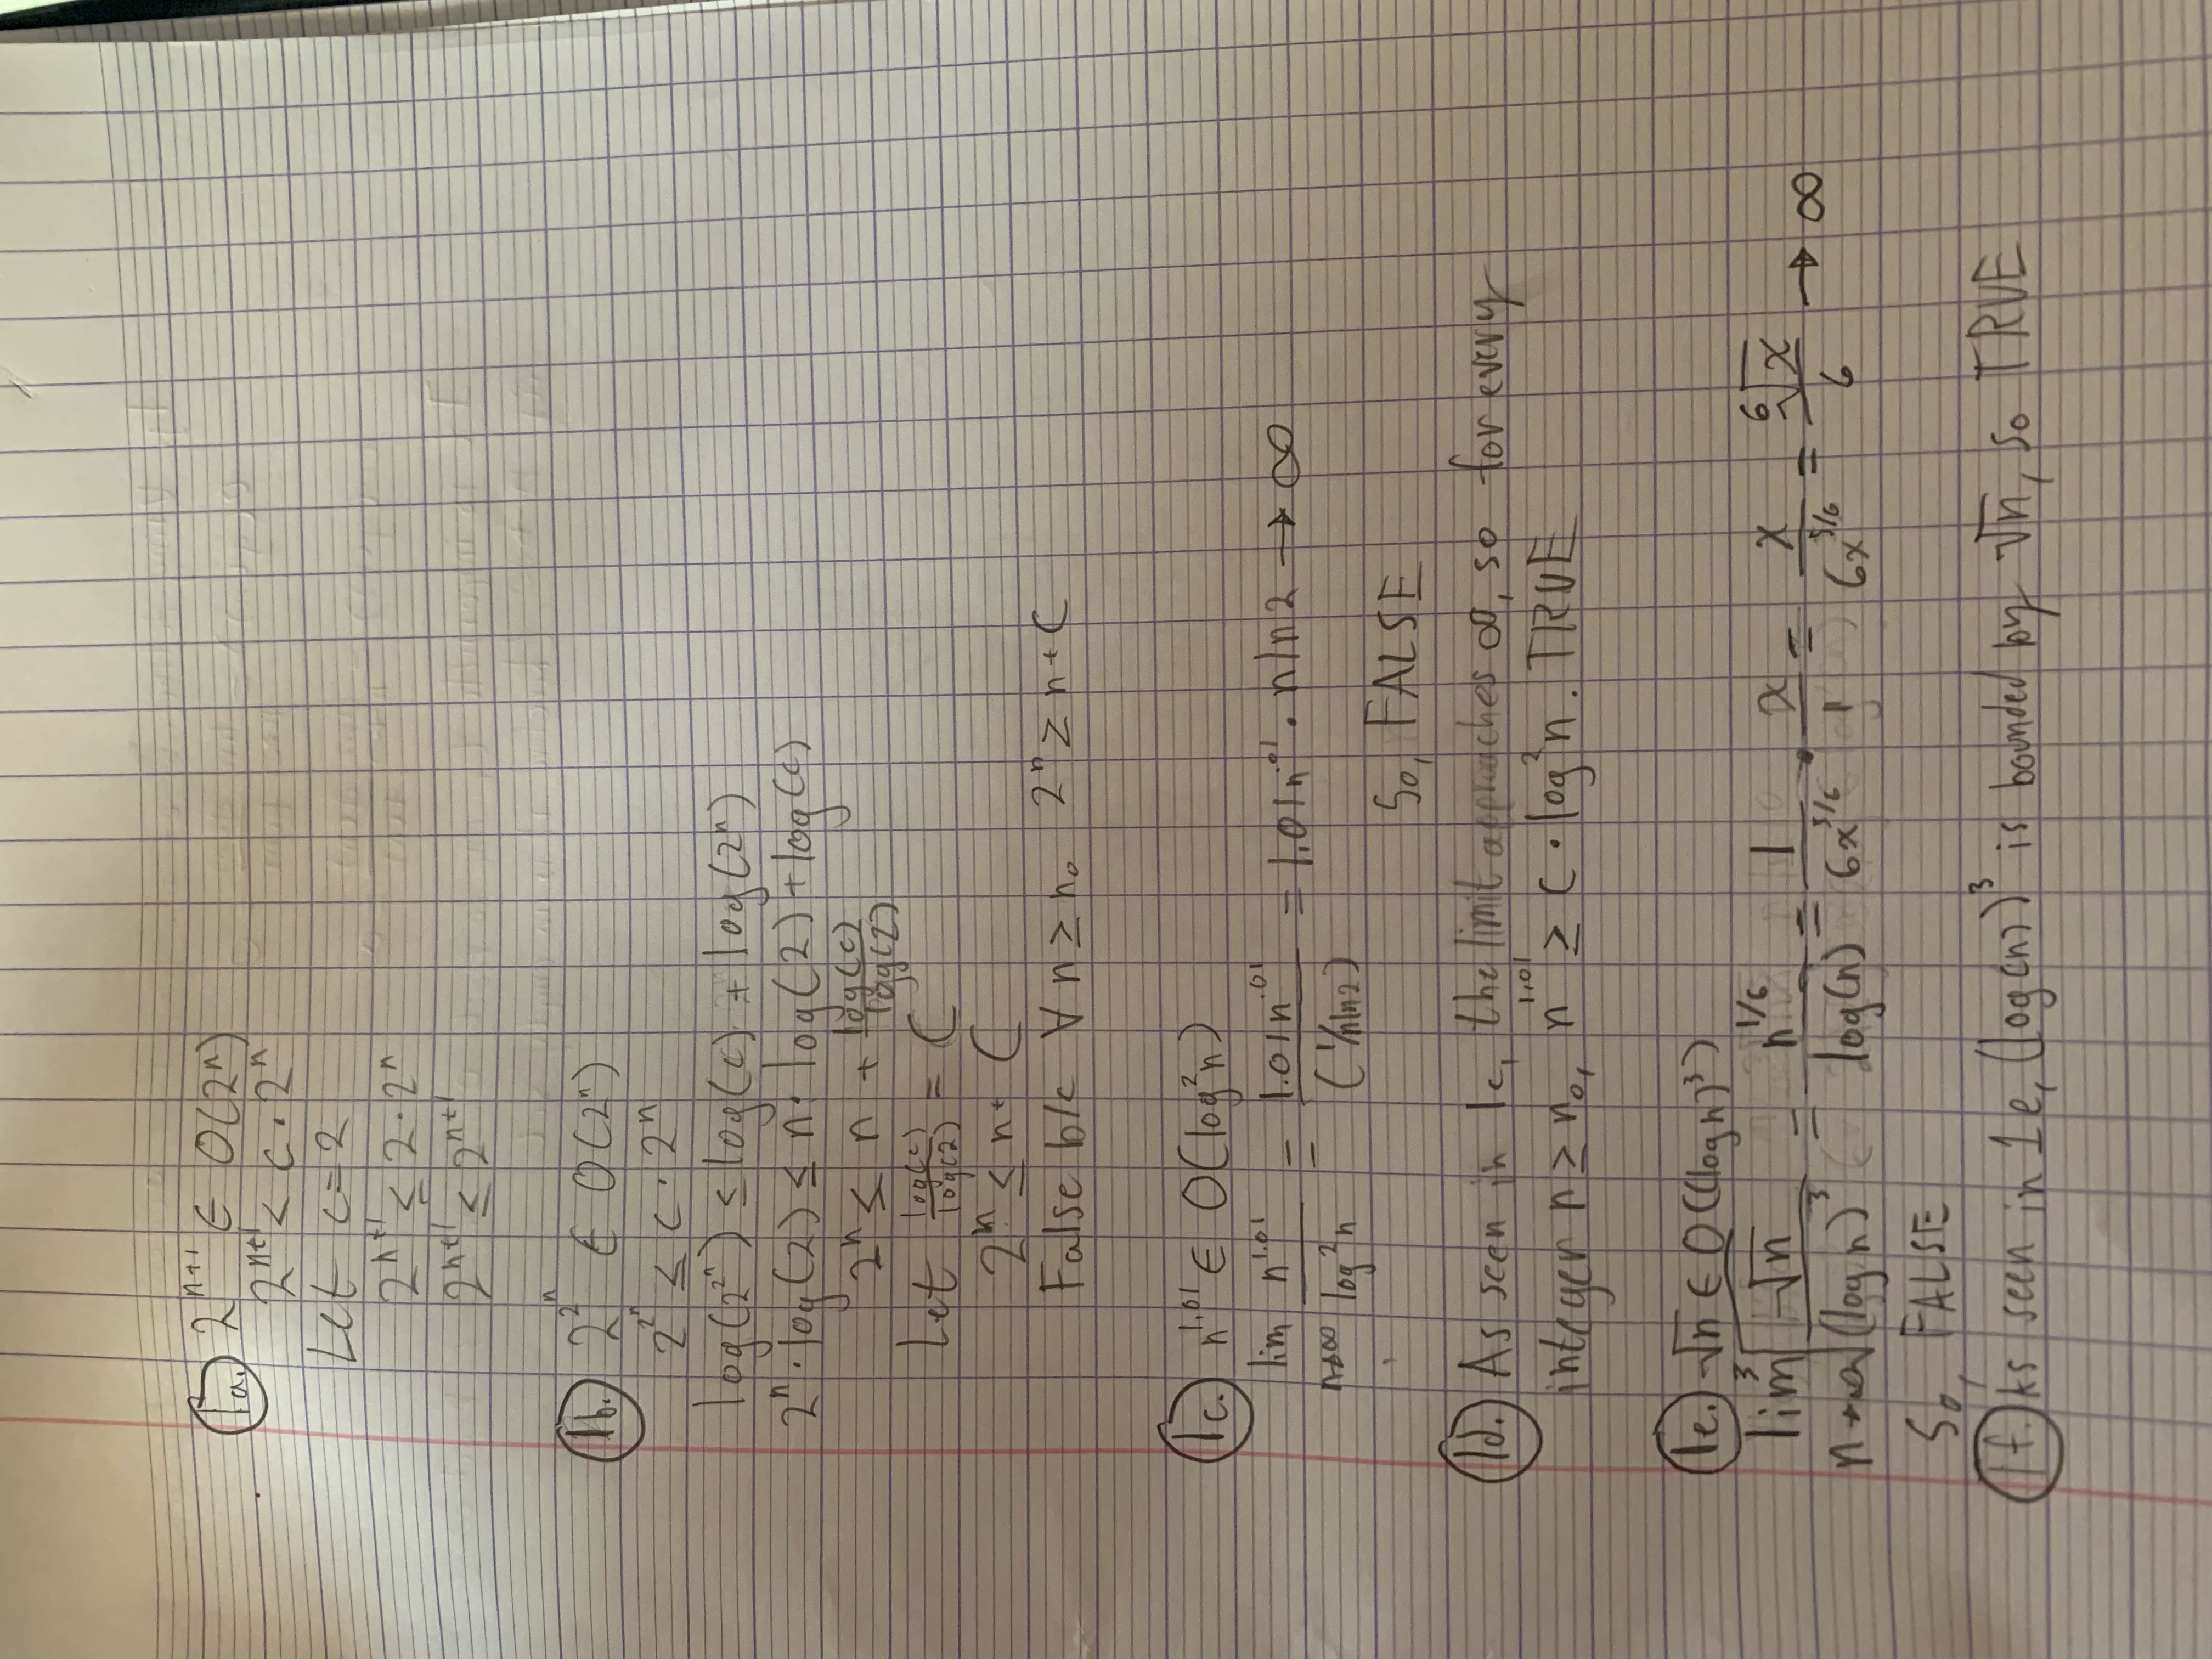 1a. 2^{n+1} ∈ O(2^n)
2^{n+1} < c · 2^n
Let c = 2
2^{n+1} ≤ 2 · 2^n
2^{n+1} ≤ 2^{n+1}
1b. 2^{2^n} ∈ O(2^n)
2^{2^n} ≤ c · 2^n
log(2^{2^n}) ≤ log(c) + log(2^n)
2^n · log(2) ≤ n · log(2) + log(c)
2^n ≤ n + log(c)/log(2)
Let log(c)/log(2) = C
2^n ≤ n + C
False b/c ∀ n ≥ n₀ 2^n ≥ n + C
1c. n^{1.01} ∈ O(log²n)
lim n→∞ n^{1.01}/log²n = 1.01n^{.01}/(1/nln2) = 1.01n^{.01} · nln2 → ∞
So, FALSE
1d. As seen in 1c, the limit approaches ∞, so for every
integer n ≥ n₀, n^{1.01} ≥ C · log²n. TRUE
1e. √n ∈ O((logn)³)
lim n→∞ ³√(√n/(logn)³) = n^{1/6}/log(n) = 1/6x^{5/6} · x/1 = x/6x^{5/6} = ⁶√x/6 → ∞
So, FALSE
1f. As seen in 1e, (log(n))³ is bounded by √n, so TRUE